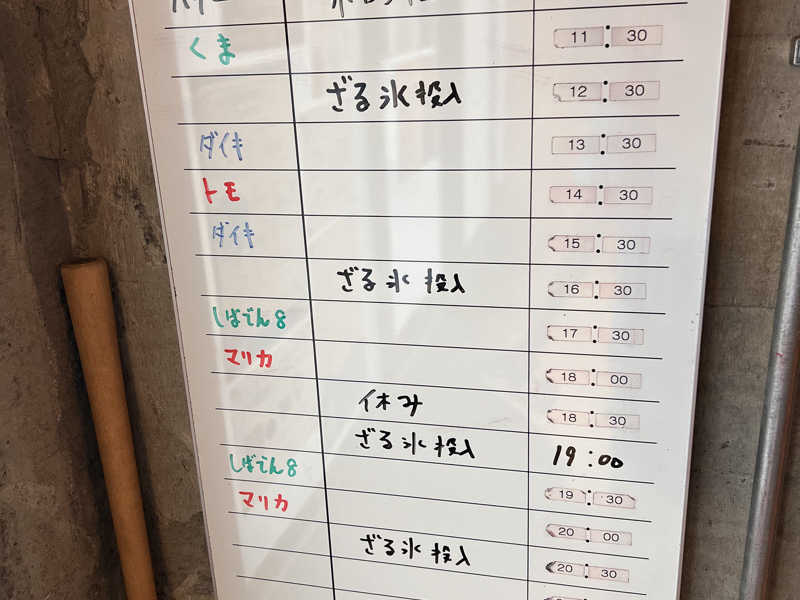 くま 11:30
ざる氷投入 12:30
ダイキ 13:30
トモ 14:30
ダイキ 15:30
ざる氷投入 16:30
しばてん8 17:30
マリカ 18:00
休み 18:30
ざる氷投入 19:00
しばてん8 19:30
マリカ 20:00
ざる氷投入 20:30